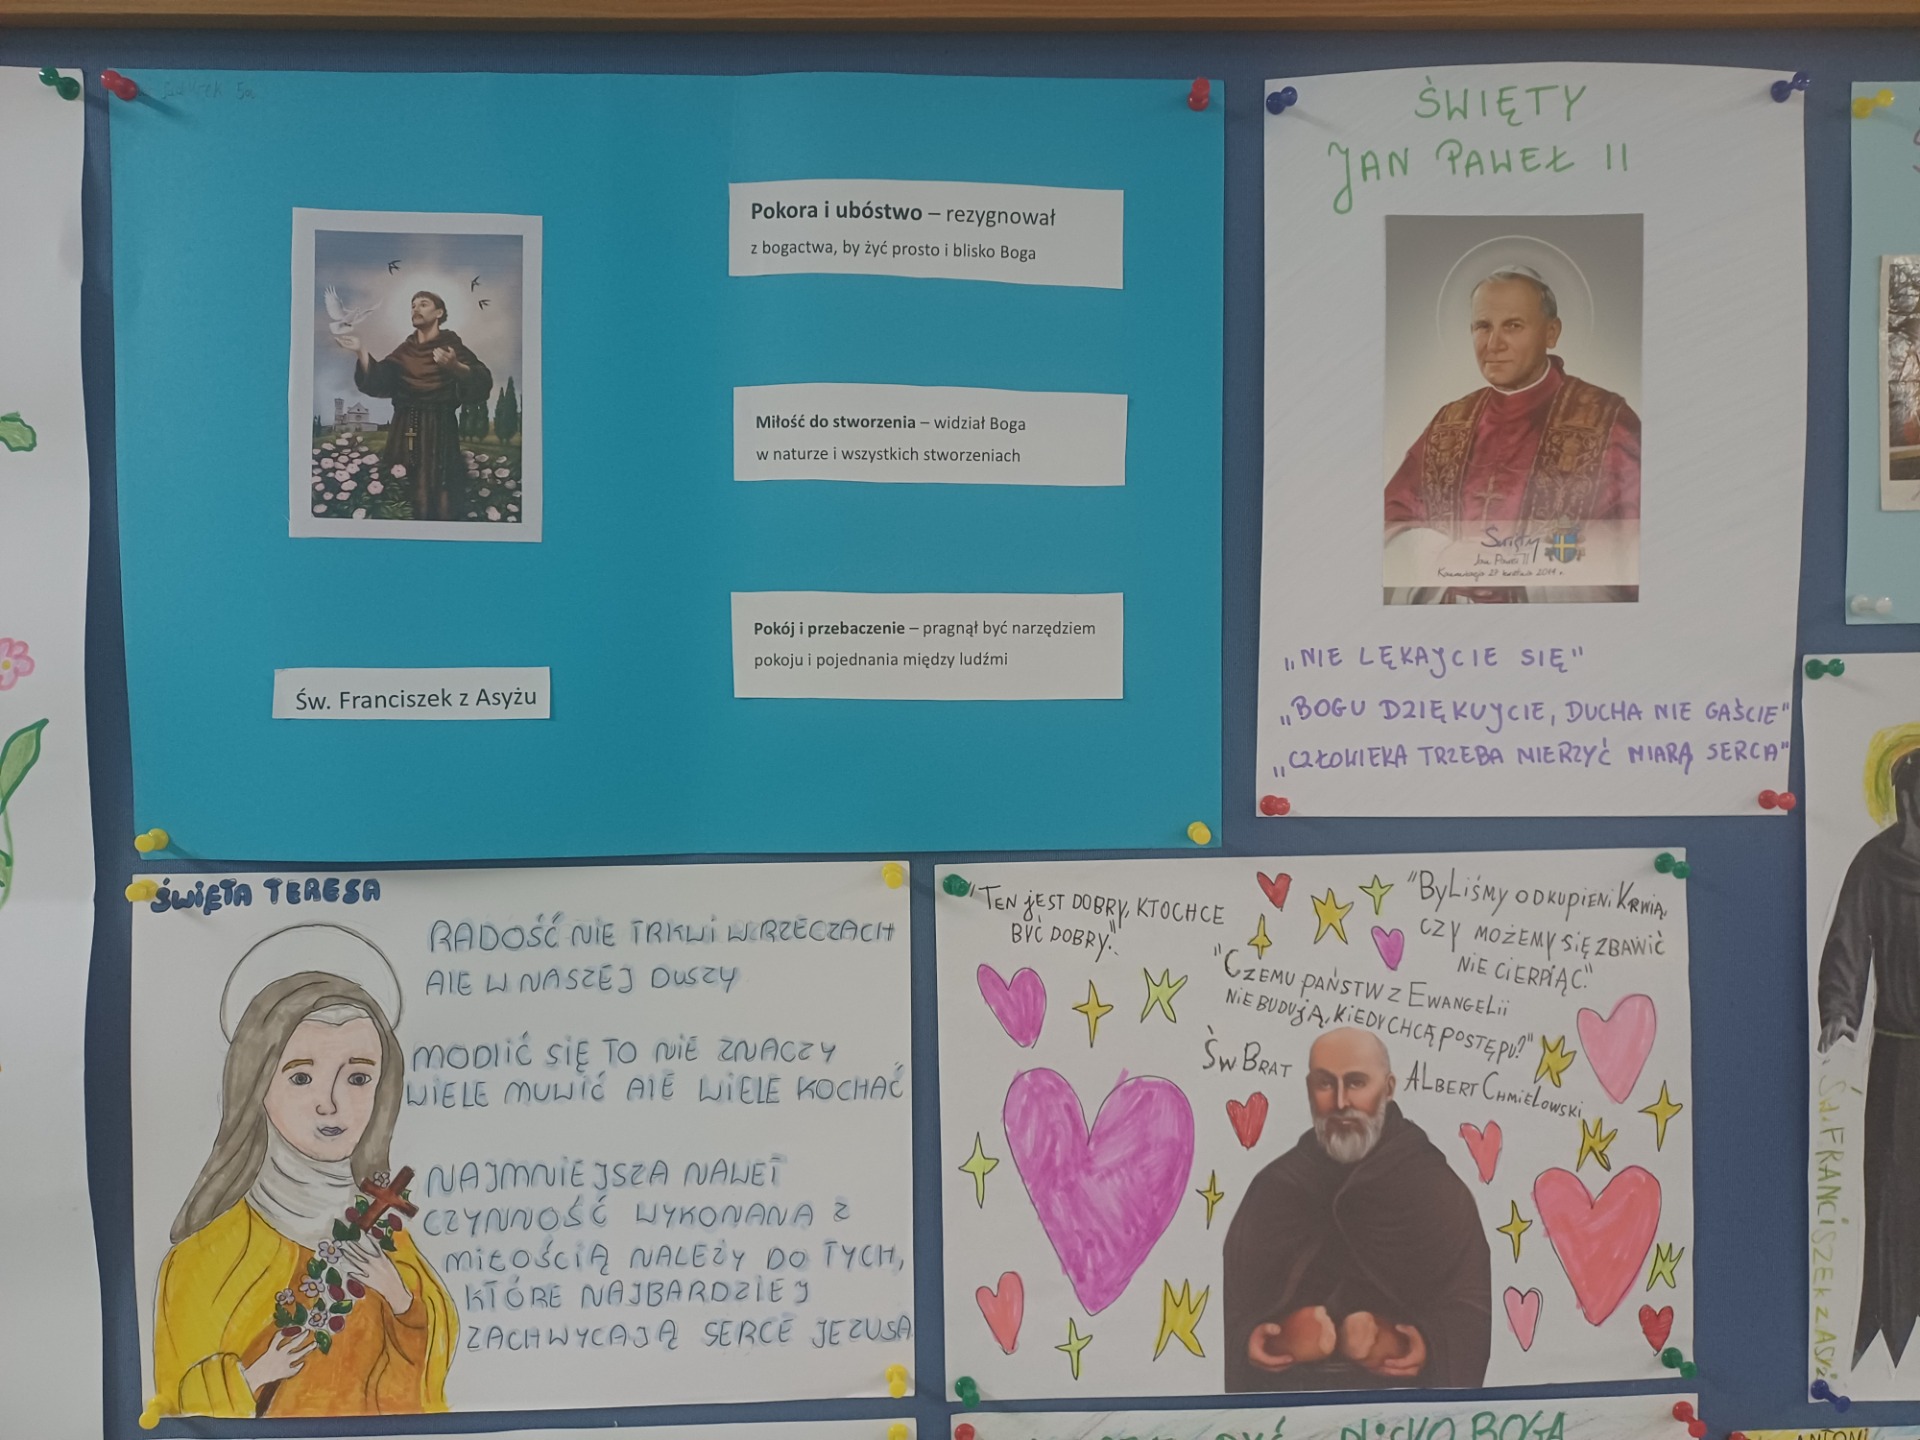 5a
Pokora i ubóstwo – rezygnował
z bogactwa, by żyć prosto i blisko Boga
Miłość do stworzenia – widział Boga
w naturze i wszystkich stworzeniach
Pokój i przebaczenie – pragnął być narzędziem
pokoju i pojednania między ludźmi
Św. Franciszek z Asyżu
ŚWIĘTY
JAN PAWEŁ II
Święty
Jan Paweł II
Kanonizacja 27 kwietnia 2014 r.
„NIE LĘKAJCIE SIĘ"
„BOGU DZIĘKUJCIE, DUCHA NIE GAŚCIE"
„CZŁOWIEKA TRZEBA MIERZYĆ MIARĄ SERCA"
ŚWIĘTA TERESA
RADOŚĆ NIE TRKWI W RZECZACH
ALE W NASZEJ DUSZY
MODLIĆ SIĘ TO NIE ZNACZY
WIELE MUWIĆ ALE WIELE KOCHAĆ
NAJMNIEJSZA NAWET
CZYNNOŚĆ WYKONANA Z
MIŁOŚCIĄ NALEŻY DO TYCH,
KTÓRE NAJBARDZIEJ
ZACHWYCAJĄ SERCE JEZUSA
"TEN JEST DOBRY, KTO CHCE
BYĆ DOBRY."
"BYLIŚMY ODKUPIENI KRWIĄ,
CZY MOŻEMY SIĘ ZBAWIĆ
NIE CIERPIĄC."
"CZEMU PAŃSTW Z EWANGELII
NIE BUDUJĄ, KIEDY CHCĄ POSTĘPU?"
ŚW BRAT
ALBERT CHMIELOWSKI
Św. FRANCISZEK Z ASYŻ
BOGA
ANTONI